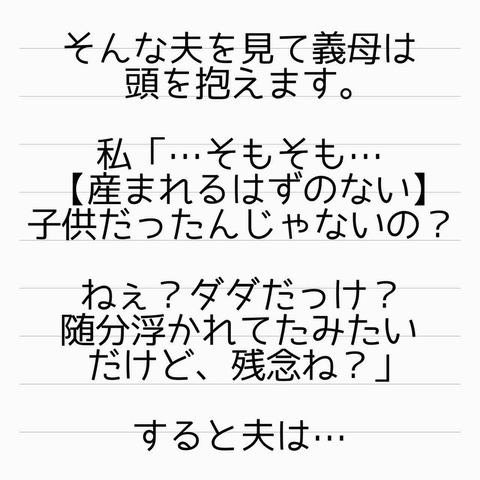 そんな夫を見て義母は
頭を抱えます。
私「…そもそも…
【産まれるはずのない】
子供だったんじゃないの？
ねぇ？ダダだっけ？
随分浮かれてたみたい
だけど、残念ね？」
すると夫は…